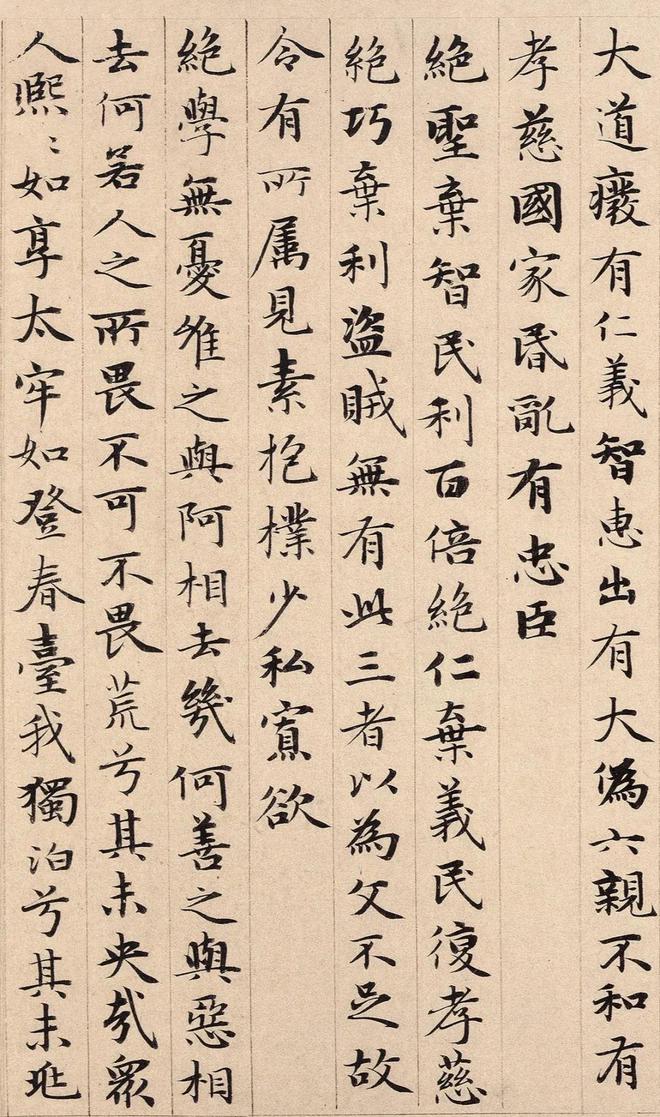 大道癈有仁義智惠出有大偽六親不和有
孝慈國家昬亂有忠臣
絕聖棄智民利百倍絕仁棄義民復孝慈
絕巧棄利盗賊無有此三者以為文不足故
令有所属見素抱樸少私寡欲
絕學無憂唯之與阿相去幾何善之與惡相
去何若人之所畏不可不畏荒兮其未央哉衆
人熈〻如享太牢如登春臺我獨泊兮其未兆